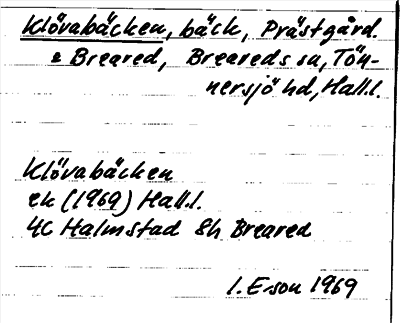 Klövabäcken, bäck, Prästgård.
2 Breared, Breareds sn, Tön-
nersjö hd, Hall.l.
Klövabäcken
ek (1969) Hall.l.
4C Halmstad 8h Breared
I. E-son 1969